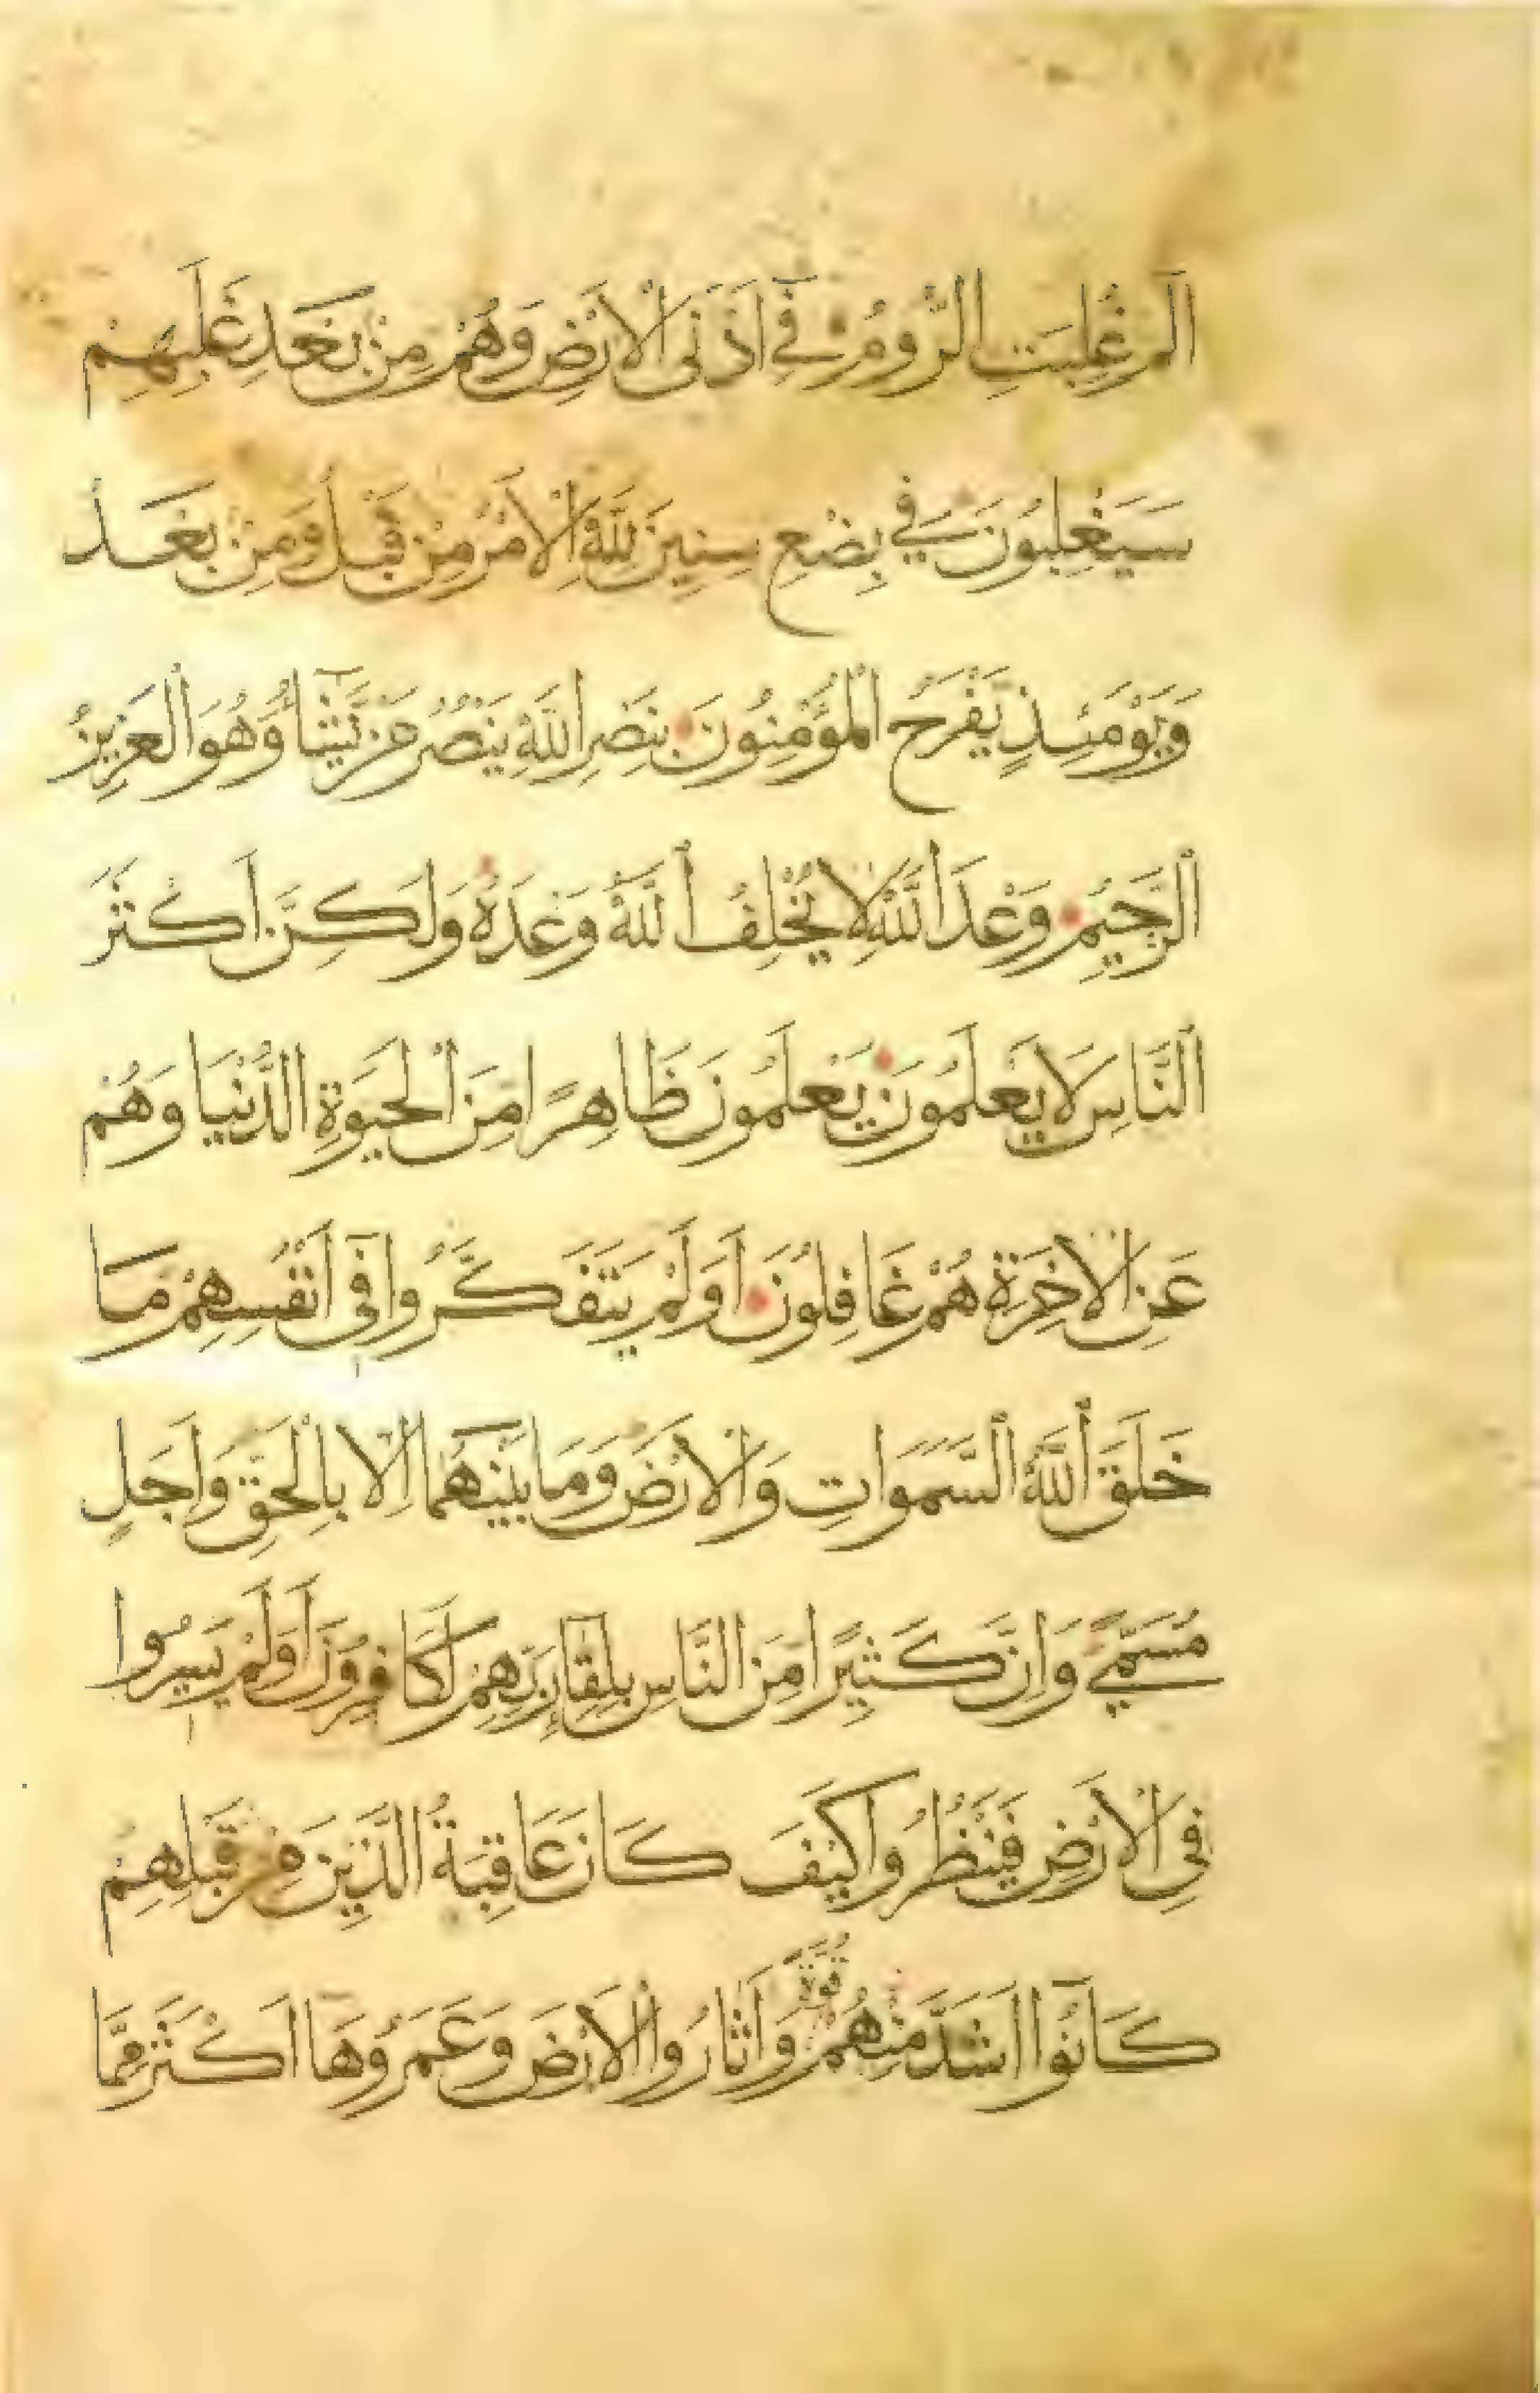 الم غُلِبَتِ الرُّومُ فِي اَدْنَى الْاَرْضِ وَهُمْ مِنْ بَعْدِ غَلَبِهِمْ
سَيَغْلِبُونَ فِي بِضْعِ سِنِينَ لِلَّهِ الْاَمْرُ مِنْ قَبْلُ وَمِنْ بَعْدُ
وَيَوْمَئِذٍ يَفْرَحُ الْمُؤْمِنُونَ بِنَصْرِ اللَّهِ يَنْصُرُ مَنْ يَّشَاءُ وَهُوَ الْعَزِيزُ
الرَّحِيمُ وَعْدَ اللَّهِ لَا يُخْلِفُ اللَّهُ وَعْدَهُ وَلَكِنَّ اَكْثَرَ
النَّاسِ لَا يَعْلَمُونَ يَعْلَمُونَ ظَاهِرًا مِّنَ الْحَيَوةِ الدُّنْيَا وَهُمْ
عَنِ الْاخِرَةِ هُمْ غَافِلُونَ اَوَلَمْ يَتَفَكَّرُوا فِي اَنْفُسِهِمْ مَا
خَلَقَ اللَّهُ السَّمَوَاتِ وَالْاَرْضَ وَمَا بَيْنَهُمَا اِلَّا بِالْحَقِّ وَاَجَلٍ
مُسَمًّى وَاِنَّ كَثِيرًا مِّنَ النَّاسِ بِلِقَاءِ رَبِّهِمْ لَكَافِرُونَ اَوَلَمْ يَسِيرُوا
فِي الْاَرْضِ فَيَنْظُرُوا كَيْفَ كَانَ عَاقِبَةُ الَّذِينَ مِنْ قَبْلِهِمْ
كَانُوا اَشَدَّ مِنْهُمْ قُوَّةً وَاَثَارُوا الْاَرْضَ وَعَمَرُوهَا اَكْثَرَ مِمَّا